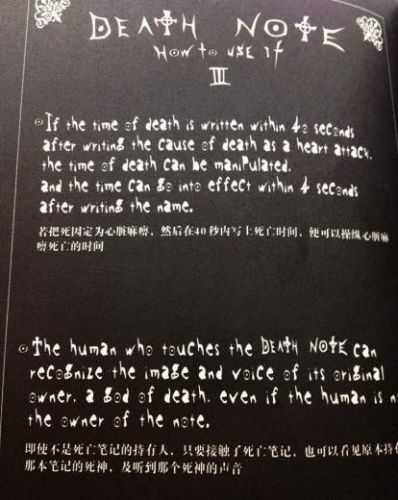 DEATH NOTE
How to USE It
III
If the time of death is written within 40 seconds
after writing the cause of death as a heart attack,
the time of death can be manipulated,
and the time can go into effect within 4 seconds
after writing the name.
若把死因定为心脏麻痹，然后在40秒内写上死亡时间，便可以操纵心脏麻
痹死亡的时间
The human who touches the DEATH NOTE can
recognize the image and voice of its original
owner, a god of death, even if the human is n
the owner of the note.
即使不是死亡笔记的持有人，只要接触了死亡笔记，也可以看见原本持
那本笔记的死神，及听到那个死神的声音